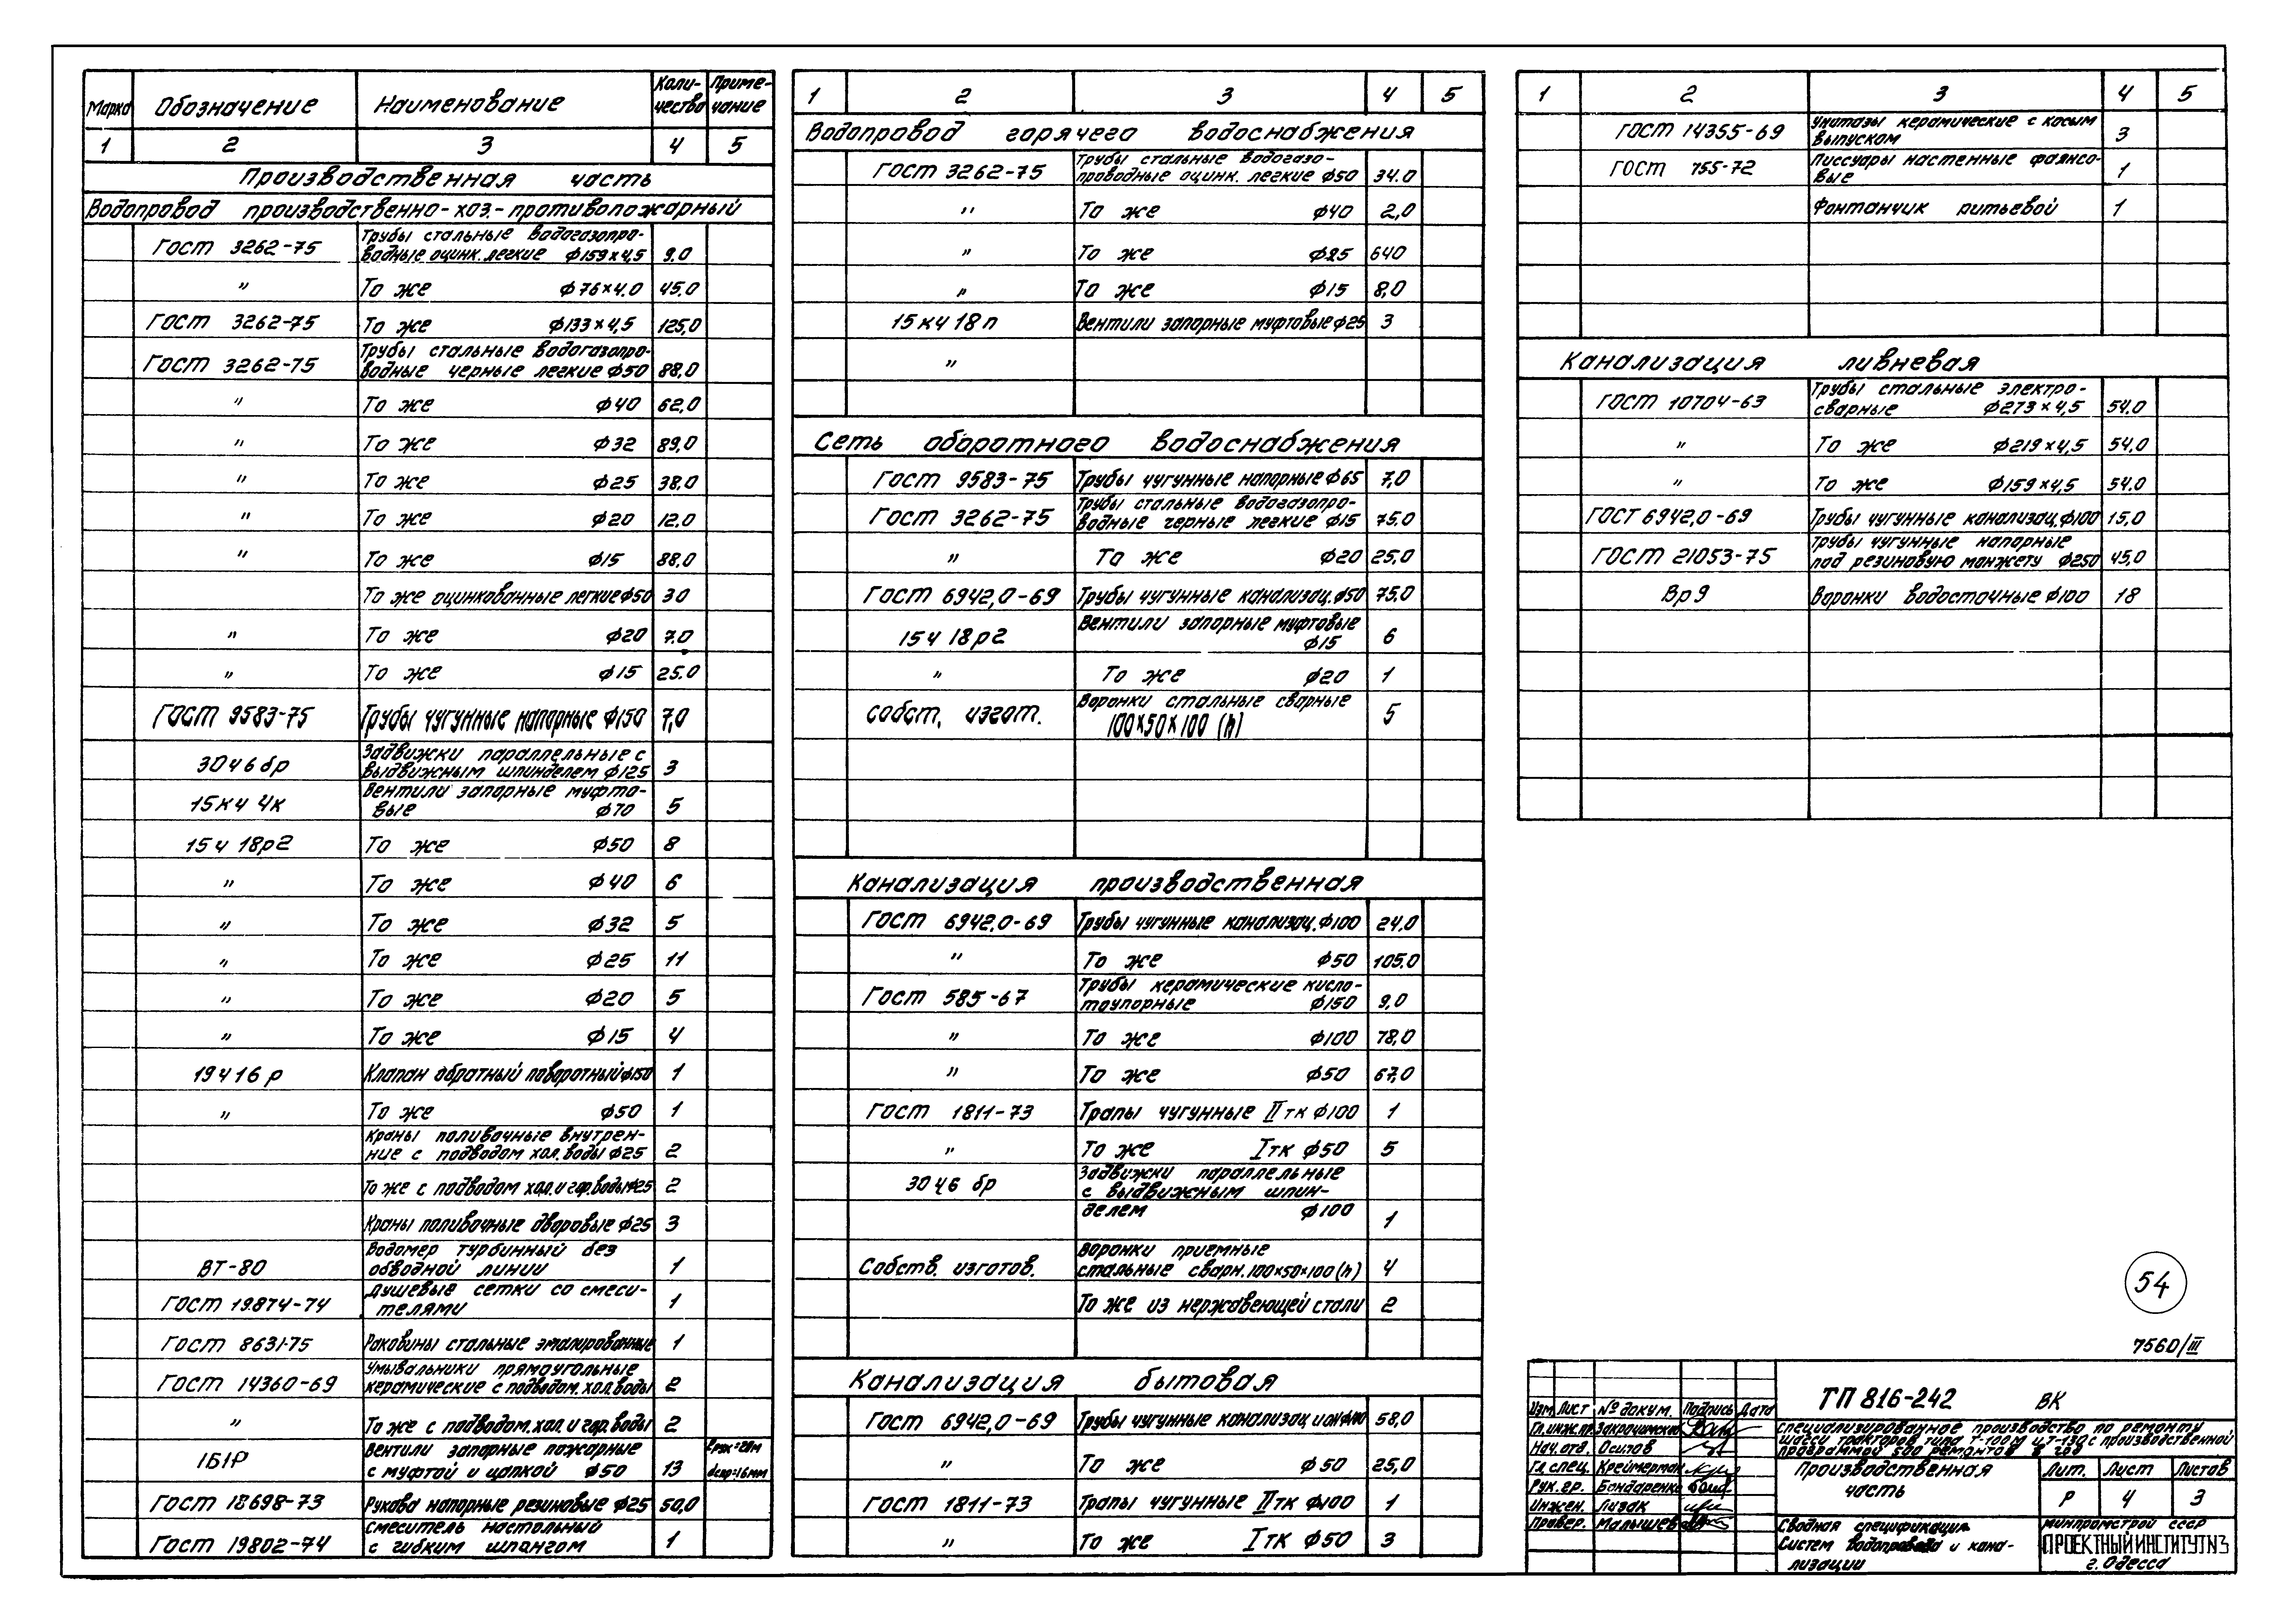 Марка Обозначение Наименование Коли-чество Приме-чание
1 2 3 4 5
Производственная часть
Водопровод производственно-хоз.-противопожарный
ГОСТ 3262-75 Трубы стальные водогазопро-
водные оцинк. легкие ф159×4,5 9,0
" То же ф76×4.0 45.0
ГОСТ 3262-75 То же ф133×4,5 125,0
ГОСТ 3262-75 Трубы стальные водогазопро-
водные черные легкие ф50 88,0
" То же ф40 62,0
" То же ф32 89,0
" То же ф25 38.0
" То же ф20 12,0
" То же ф15 88,0
То же оцинкованные легкие ф50 30
" То же ф20 7.0
" То же ф15 25.0
ГОСТ 9583-75 Трубы чугунные напорные ф150 7,0
30ч6бр Задвижки параллельные с
выдвижным шпинделем ф125 3
15кч 4к Вентили запорные муфто-
вые ф70 5
15ч 18р2 То же ф50 8
" То же ф40 6
" То же ф32 5
" То же ф25 11
" То же ф20 5
" То же ф15 4
19ч16р Клапан обратный поворотный ф150 1
" То же ф50 1
Краны поливочные внутрен-
ние с подводом хол. воды ф25 2
То же с подводом хол. и гор. воды ф25 2
Краны поливочные дворовые ф25 3
ВТ-80 Водомер турбинный без
обводной линии 1
ГОСТ 19874-74 Душевые сетки со смеси-
телями 1
ГОСТ 8631-75 Раковины стальные эмалированные 1
ГОСТ 14360-69 Умывальники прямоугольные
керамические с подводом. хол. воды 2
" То же с подводом. хол. и гор. воды 2
1Б1Р Вентили запорные пожарные
с муфтой и цапкой ф50 13 ℓрук=20м
dспр=16мм
ГОСТ 18698-73 Рукава напорные резиновые ф25 50,0
ГОСТ 19802-74 Смеситель настольный
с гибким шлангом 1
1 2 3 4 5
Водопровод горячего водоснабжения
ГОСТ 3262-75 Трубы стальные водогазо-
проводные оцинк. легкие ф50 34.0
" То же ф40 2,0
" То же ф25 640
" То же ф15 8,0
15кч18п Вентили запорные муфтовые ф25 3
"
Сеть оборотного водоснабжения
ГОСТ 9583-75 Трубы чугунные напорные ф65 7,0
ГОСТ 3262-75 Трубы стальные водогазопро-
водные черные легкие ф15 75.0
" То же ф20 25,0
ГОСТ 6942,0-69 Трубы чугунные канализац. ф50 75.0
15ч 18р2 Вентили запорные муфтовые
ф15 6
" То же ф20 1
собст. изгот. Воронки стальные сварные
100×50×100 (h) 5
Канализация производственная
ГОСТ 6942.0-69 Трубы чугунные канализац. ф100 24,0
" То же ф50 105.0
ГОСТ 585-67 Трубы керамические кисло-
тоупорные ф150 9,0
" То же ф100 78,0
" То же ф50 67.0
ГОСТ 1811-73 Трапы чугунные II тк ф100 1
" То же I тк ф50 5
30ч6 бр Задвижки параллельные
с выдвижным шпин-
делем ф100 1
Собств. изготов. Воронки приемные
стальные сварн. 100×50×100 (h) 4
То же из нержавеющей стали 2
Канализация бытовая
ГОСТ 6942,0-69 Трубы чугунные канализационн ф100 58,0
" То же ф50 25,0
ГОСТ 1811-73 Трапы чугунные II тк ф100 1
" То же I тк ф50 3
1 2 3 4 5
ГОСТ 14355-69 Унитазы керамические с косым
выпуском 3
ГОСТ 755-72 Писсуары настенные фаянсо-
вые 1
Фонтанчик питьевой 1
Канализация ливневая
ГОСТ 10704-63 Трубы стальные электро-
сварные ф273×4,5 54.0
" То же ф219×4,5 54,0
" То же ф159×4,5 54.0
ГОСТ 6942,0-69 Трубы чугунные канализац. ф100 15.0
ГОСТ 21053-75 Трубы чугунные напорные
под резиновую манжету ф250 45,0
Вр9 Воронки водосточные ф100 18
54
7560/III
ТП 816-242 ВК
Изм. Лист № докум. Подпись Дата
Гл. инж. пр.
Нач. отд. Осипов
Гл. спец. Креймерман
Рук. гр. Бондаренко
Инжен. Лизак
Провер. Малышев
Специализированное производство по ремонту
шасси тракторов типа Т-100М и Т-130 с производственной
программой 500 ремонтов в год
Производственная
часть
Лит. Лист Листов
Р 4 3
Сводная спецификация
Систем водопровода и кана-
лизации
Минпромстрой СССР
ПРОЕКТНЫЙ ИНСТИТУТ №3
г. Одесса